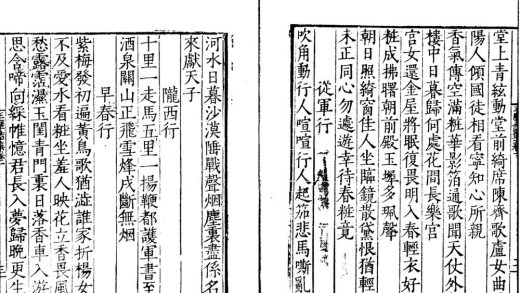 堂上青絃動堂前綺席陳齊歌盧女曲
陽人傾國徒相看寧知心所親
香氣傳空滿粧華影箔通歌聞天仗外
樓中日暮歸何處花間長樂宮
宮女還金屋將眠復畏明入春輕衣好
粧成拂曙朝前殿玉墀多珮聲
朝日照綺窗佳人坐臨鏡散黛恨猶輕
未正同心勿遽遊幸待春粧竟
從軍行
吹角動行人喧喧行人起笳悲馬嘶亂
河水日暮沙漠陲戰聲烟塵裏盡係名
來獻天子
隴西行
十里一走馬五里一揚鞭都護軍書至
酒泉關山正飛雪烽戍斷無烟
早春行
紫梅發初遍黃鳥歌猶澁誰家折楊女
不及愛水看粧坐羞人映花立香畏風
愁露霑濕玉閨青門裏日落香車入遊
思含啼向綵帷憶君長入夢歸晚更生